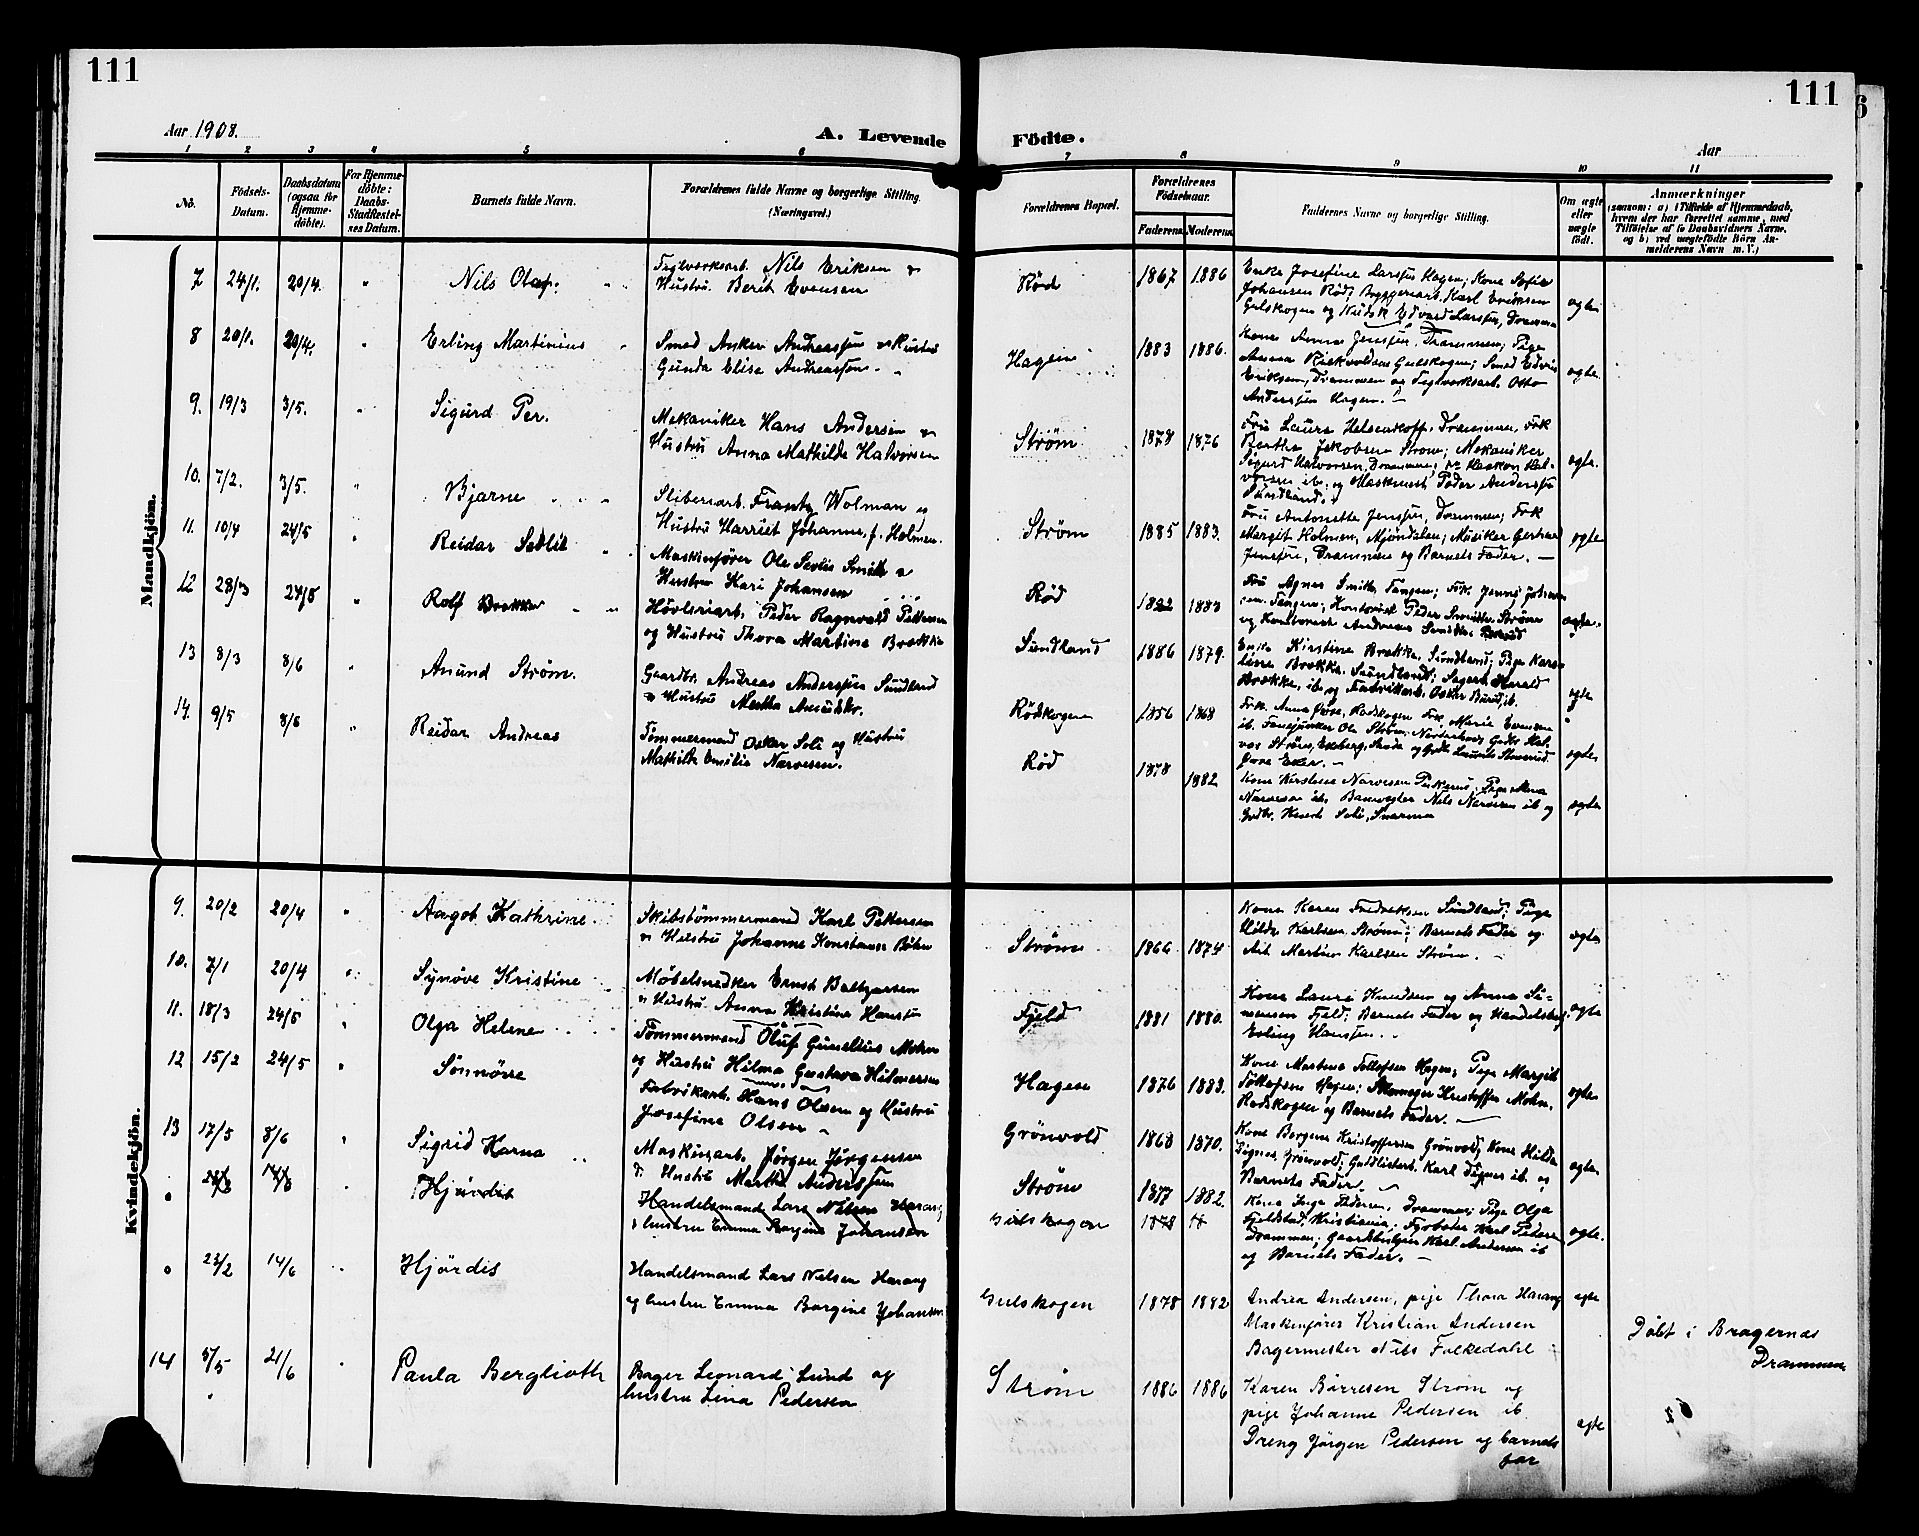 111
111
Aar 1908.
A. Levende
Fødte.
Aar
1 2 3 4 5 6 7 8 9 10 11
No.
Fødsels-
Datum.
Daabsdatum
(ogsaa for
Hjemme-
døbte).
For Hjemme-
døbte:
Daabs-
Stadfæstel-
ses Datum.
Barnets fulde Navn.
Forældrenes fulde Navne og borgerlige Stilling.
(Næringsvei.)
Forældrenes Bopæl.
Forældrenes
Fødselsaar.
Faderens
Moderens
Faddernes Navne og borgerlige Stilling.
Om ægte
eller
uægte
født.
Anmærkninger
(saasom: a) i Tilfælde af Hjemmedaab,
hvem der har forrettet samme, med
Tilføielse af to Daabsvidners Navne,
og b) ved uægtefødte Børn An-
melderens Navn m. V.)
Mandkjøn.
7 24/1. 20/4. " Nils Olaf.
Teglverksarb. Nils Eriksen &
Hustru Berit Evensen
Rød 1867 1886
Enke Josefine Larssen Hagen; Kone Sofie
Johansen Rød; Bryggeriarb. Karl Eriksen
Gulskogen og Edvard Larssen, Drammen
ægte
8 20/1. 20/4. " Erling Martinius
Smed Anker Andreassen & Hustru
Gunda Elise Andreassen.
Hagen 1883 1886.
Kone Anna Jenssen, Drammen; Pige
Anna Gulskogen; Smed Edvin
Eriksen, Drammen og Teglverksarb. Otto
Anderssen Hagen.
ægte.
9. 19/3 3/5. " Sigurd Per.
Mekaniker Hans Andersen &
Hustru Anna Mathilde Halvorsen
Strøm 1878 1876
Fru Laura Drammen, Frk
Berthe Jakobsen Strøm; Mekaniker
Sigurd Halvorsen, Drammen; Haakon Hal-
vorsen ib. og Maskinist Peder Anderssen
Sundland.
ægte.
10. 7/2. 3/5. " Bjarne
Sliberiarb. Frantz Wolman og
Hustru Harriet Johanne, f. Holmen.
Strøm 1885 1883.
Fru Antonette Jenssen, Drammen; Frk
Margit Holmen, Mjøndalen; Musiker
Jenssen, Drammen og Barnets Fader. —
ægte
11. 10/4 24/5 " Reidar Sevlie
Maskinfører Ole Sevlie Smith &
Hustru Kari Johansen
Rød 1882 1883
Fru Agnes Smith, Tangen; Frk. Jenny Johan-
sen. Tangen; Kontorist Peder Strøm
og Kontorist Andreas Smith,
ægte.
12 28/3 24/5 " Rolf Brække
Høvleriarb. Peder Ragnvald Pettersen
og Hustru Thora Martine Brække
Sundland 1886 1879.
Enke Kirstine Brække, Sundland; Pige Karo-
line Brække, Sundland; Harald
Brække, ib. og Fabrikarb. Oskar ib.
ægte
13 8/3 8/6 " Anund Strøm.
Gaardbr. Andreas Anderssen Sundland
& Hustru Martha
Rødskogen 1856 1868
Frk. Anna Rødskogen Frk Marie Evensen
ib. Ole Strøm,
ægte
14. 9/5 8/6 " Reidar Andreas
Tømmermand Oskar Soli og Hustru
Mathilde Emilie Narvesen.
Rød 1878 1882
Kone Kirstine Narvesen Pige
Narvesen ib. Banevogter Nils Narvesen ib og
Gdbr. Soli,
ægte
Kvindekjøn.
9. 20/2 20/4 " Aagot Kathrine.
Skibstømmermand Karl Pettersen
& Hustru Johanne Konstanse Bøhn
Strøm 1866 1874
Kone Karen Fredriksen Sundland; Pige
Hilda Karlsen Strøm; Barnets Fader og
Arb Martin Karlsen Strøm. —
ægte
10. 7/1 20/4 " Synøve Kristine
Møbelsnedker Ernst
& Hustru Anna Kristine Hanssen
Fjeld 1881 1880.
Kone Laura Knudsen og Anna Si-
monsen Fjeld; Barnets Fader og Handelsbetj.
Erling Hanssen.
ægte.
11. 18/3 24/5 " Olga Helene
Tømmermand Oluf Gunelius Mohn
og Hustru Hilma Gustava Hilmersen
Hagen 1876 1883.
Kone Martina Tollefsen Hagen; Pige Margit
Tollefsen Hagen; Kristoffer Mohn,
Rødskogen og Barnets Fader. —
ægte
12 15/2 24/5 " Sønnøve
Fabrikarb. Hans Olsen og Hustru
Josefine Olsen —
Grönvold 1868 1870.
Kone Bergine Kristoffersen Grönvold, Kone Hilda
Signes, Grönvold; Guldlistarb. Karl Signes ib. og
Barnets Fader.
ægte
13 17/5 8/6 " Sigrid Karna
Maskinarb. Jørgen Jørgensen
& Hustru Martha Anderssen
Strøm 1877 1882.
Kone Inga Drammen; Pige Olga
Fjeldstad, Kristiania; Fyrbøter Karl Pedersen
Drammen; Karl Andersen ib
og Barnets Fader. —
ægte.
" Hjördis
Handelsmand Lars Nilsen Harang
& hustru Emma Bergine Johansen
Gulskogen 1878
" 23/2 14/6 " Hjördis
Handelsmand Lars Nielsen Harang
og hustru Emma Bergine Johansen
Gulskogen 1878 1882
Andrea Andersen, pige Thora Harang
Maskinfører Kristian Andersen
Bagermester Nils Falkedahl
ægte
Döbt i Bragernæs
Drammen
14 5/5 21/6 " Paula Bergliotb
Bager Leonard Lund og
hustru Lina Pedersen
Strøm 1886 1886
Karen Børresen Strøm og
pige Johanne Pedersen ib
Dreng Jörgen Pedersen og barnets
far
ægte